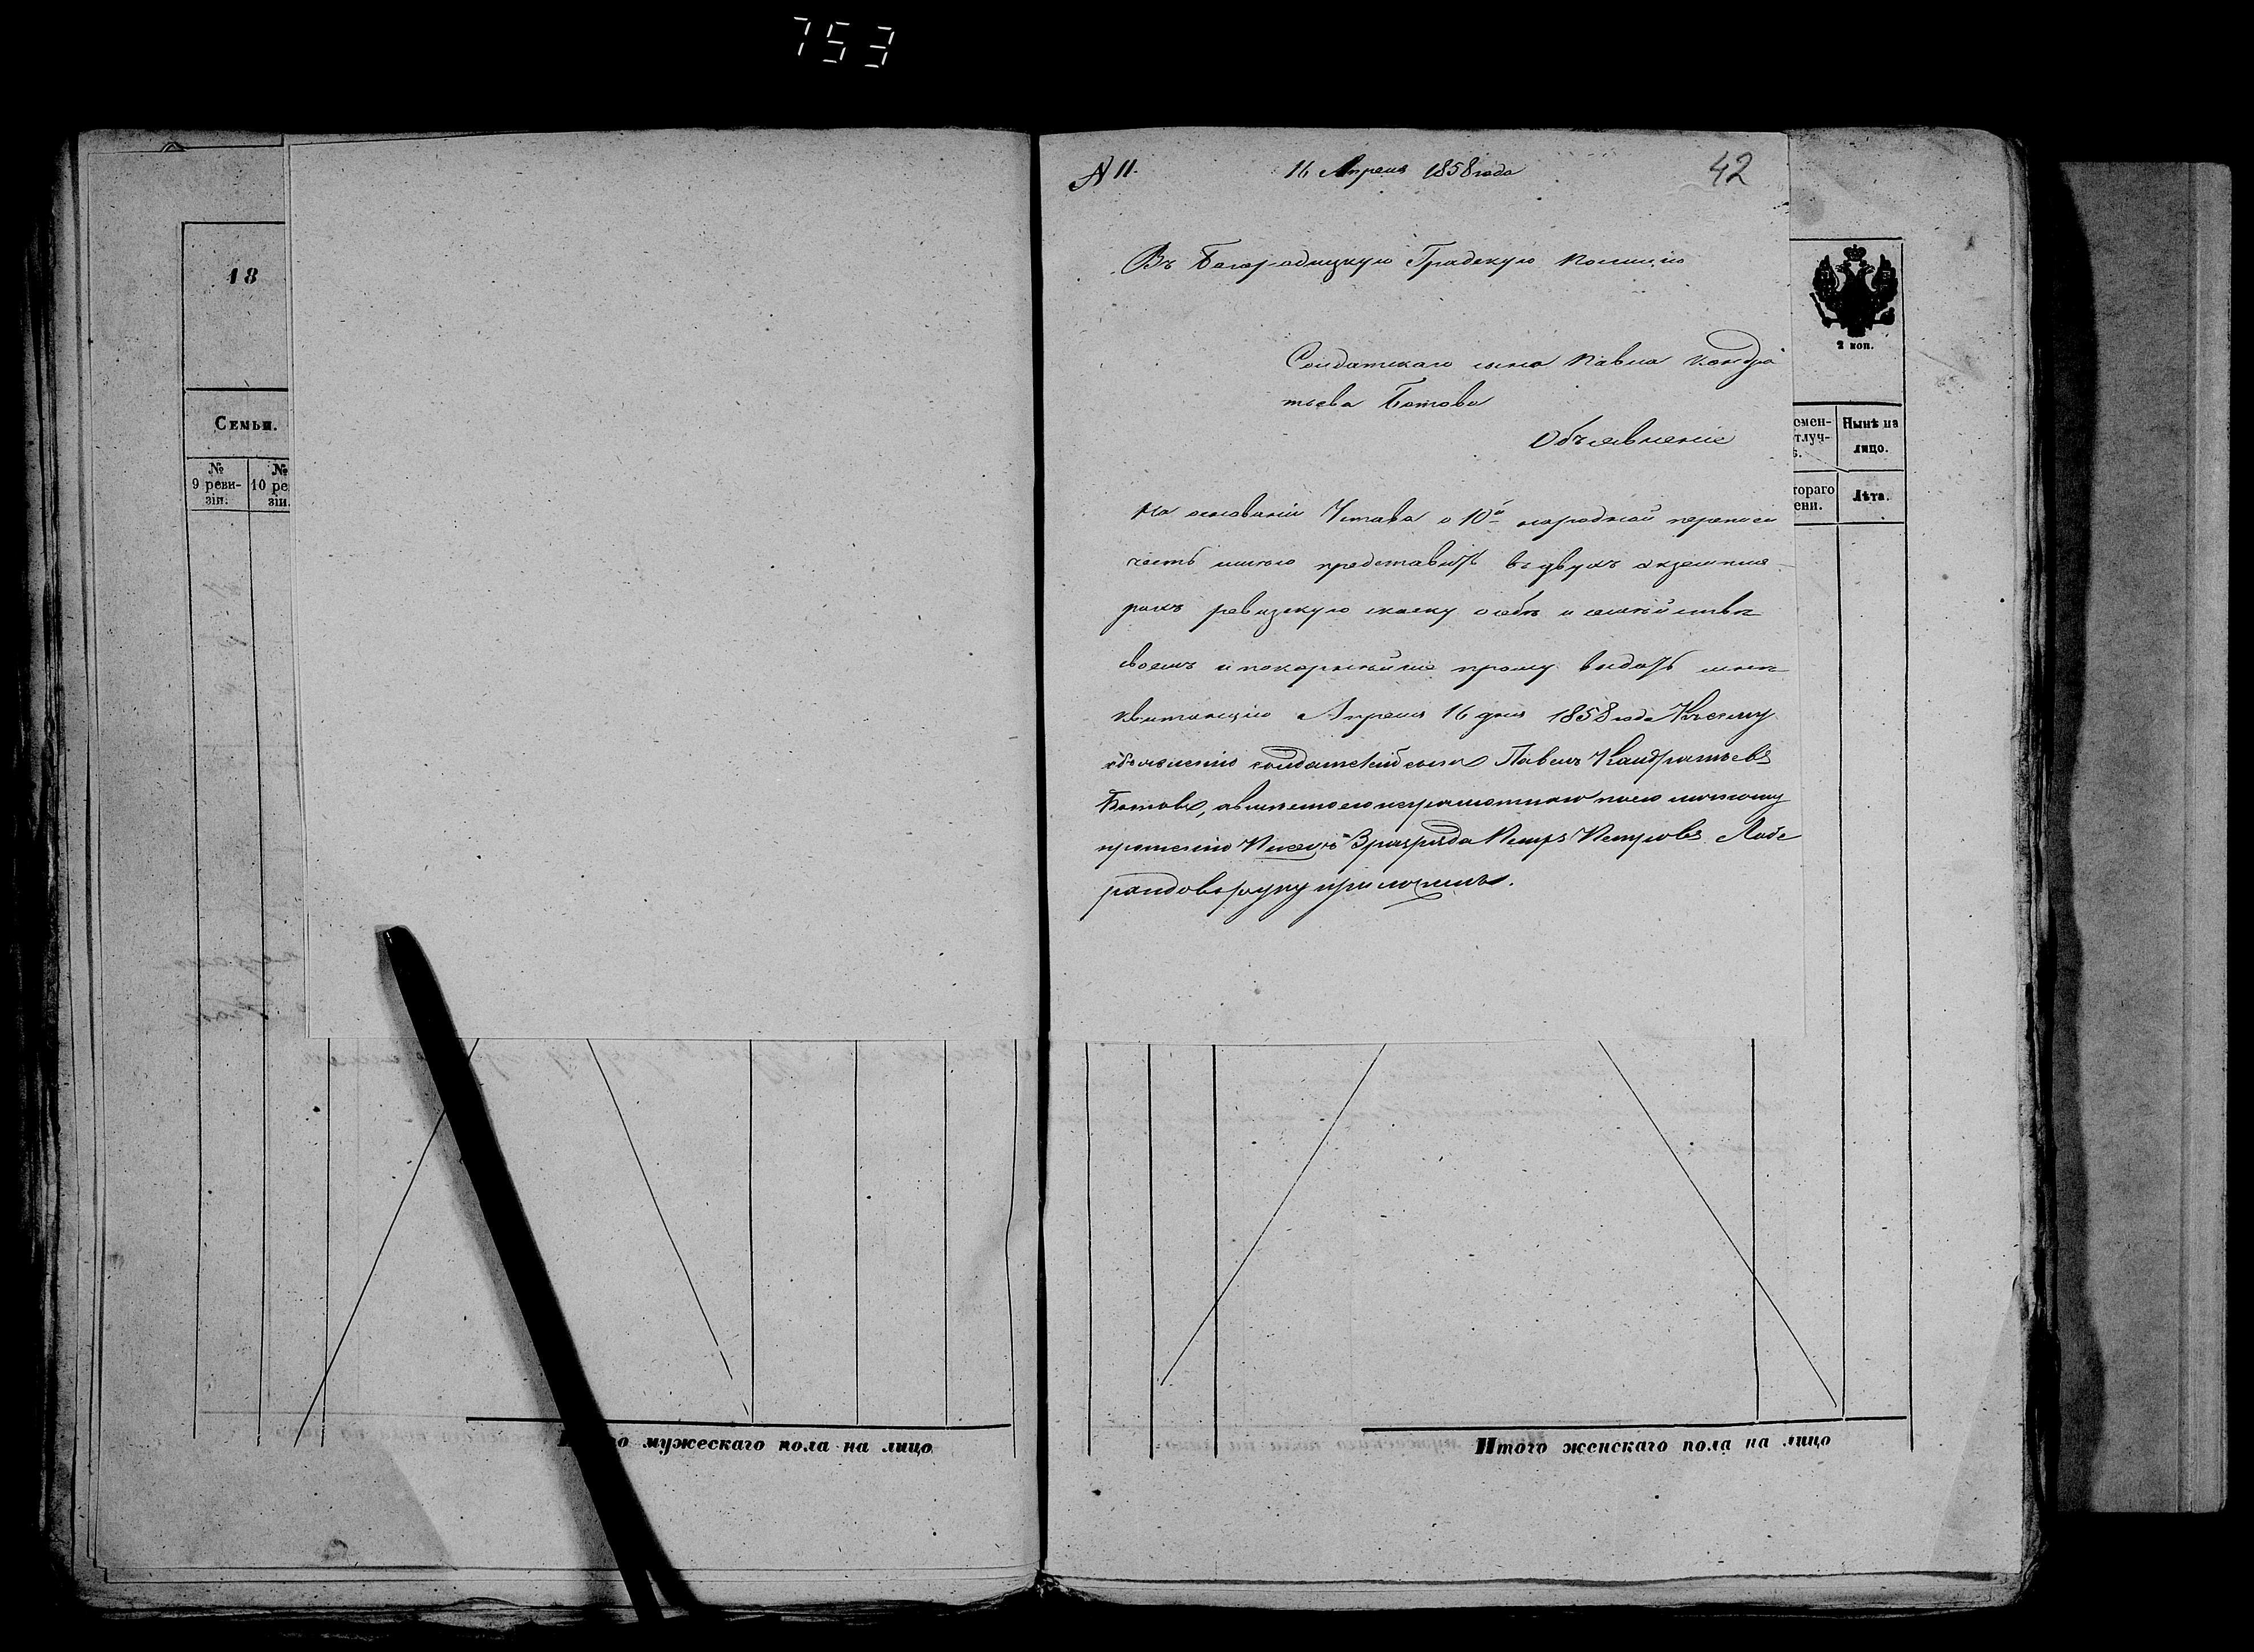 753
18
Семьи.
№
9 реви-
зіи.
№
10 ре
зіи.
о мужескаго пола на лицо
№ 11.
16 Апреля 1858 года
42
Въ Богородицкую Градскую Полицію
Солдатскаго сына Павла Кондра
тьева Ботова
Объявленіе
На основаніи Устава о 10й народной переписи
честь имею представить въ двухъ экземпля
рахъ ревизскую скаску о себе и семействе
своемъ и покорнейше прошу выдать мне
квитанцію Апреля 16 дня 1858 года Къ сему
объявленію солдатскій сынъ Павелъ Кандратьевъ
Ботовъ, а вместо его неграмотнаго по его личному
прошенію Писецъ 3 разряда Петръ Петровъ
руку приложилъ.
2 коп.
емен-
тлуч-
ѣ.
Нынѣ на
лицо.
тораго
ени.
Лѣта.
Итого женскаго пола на лицо